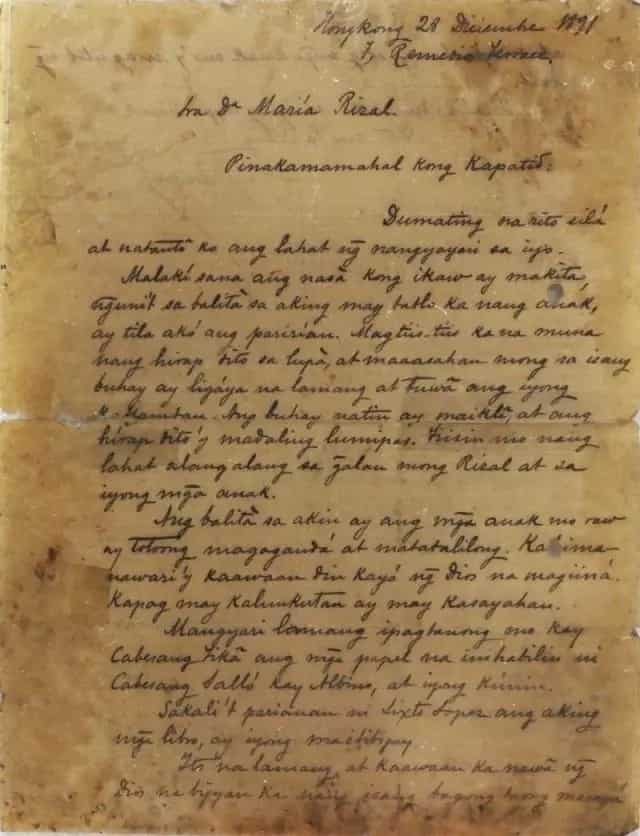 Hongkong 28 Diciembre 1891
Remedios Terrace.
Sra Dª María Rizal.
Pinakamamahal kong Kapatid:
Dumating na rito silá
at natantô ko ang lahat ng̃ nangyayari sa iyo.
Malakí sana ang nasà kong ikaw ay makita,
ng̃uni't sa balità sa aking may tatlo ka nang anák,
ay tila akó ang paririan. Magtiis-tiis ka na muna
nang hirap dito sa lupà, at maaasahan mong sa isang
buhay ay ligaya na lamang at tuwâ ang iyong
Ang buhay natin ay maiklî, at ang
hirap dito'y madaling lumipas. Tiisin mo nang
lahat alang alang sa g̃alan mong Rizal at sa
iyong mg̃a anak.
Ang balità sa akin ay ang mg̃a anak mo raw
ay totoong magagandá at matatalilong.
nawari'y kaawaan din kayó ng̃ Dios na magiiná.
Kapag may kalunkutan ay may kasayahan.
Mangyari lamang ipagtanong mo kay
Cabesang Tikâ ang mg̃a papel na inihabilin ni
Cabesang Salló kay Albino, at iyong kúnin.
Sakali't parianan ni Sixto Lopez ang aking
mg̃a libro, ay iyong
Itó na lamang, at kaawaan ka nawâ ng̃
Dios na bigyan ka nang isang bagong taong masayá